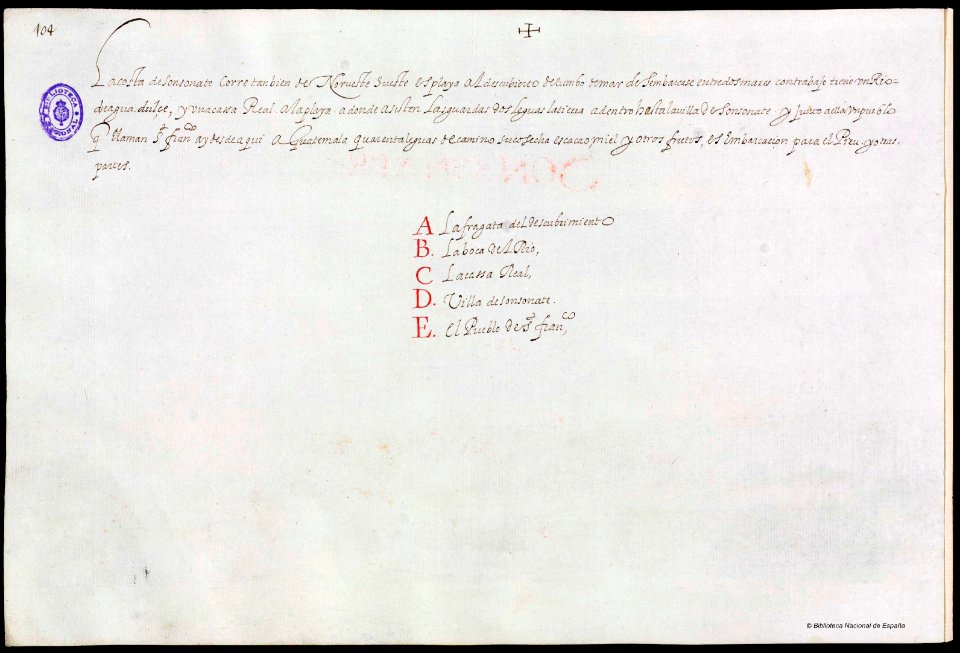 104
La costa de Sonsonate corre tanbien de Norueste Sueste es playa al descubierto de tunbo de mar desembarcase entre dos mares con trabajo tiene un Rio
de agua dulce, y vna cassa Real a la playa a donde asisten las guardas dos leguas la tierra adentro hesta la uilla de Sonsonate y junto a ella vn pueblo
q llaman S. franco ay desde aqui a Guatemala quarenta leguas de camino su cosecha es cacao miel y otros frutos, es Embarcacion para el Piru y otras
partes.
A La fragata del descubrimiento
B. La boca del Rio,
C La cassa Real,
D. Villa de sonsonate.
E. El Pueblo de S. franco,
BIBLIOTECA NACIONAL
© Biblioteca Nacional de España